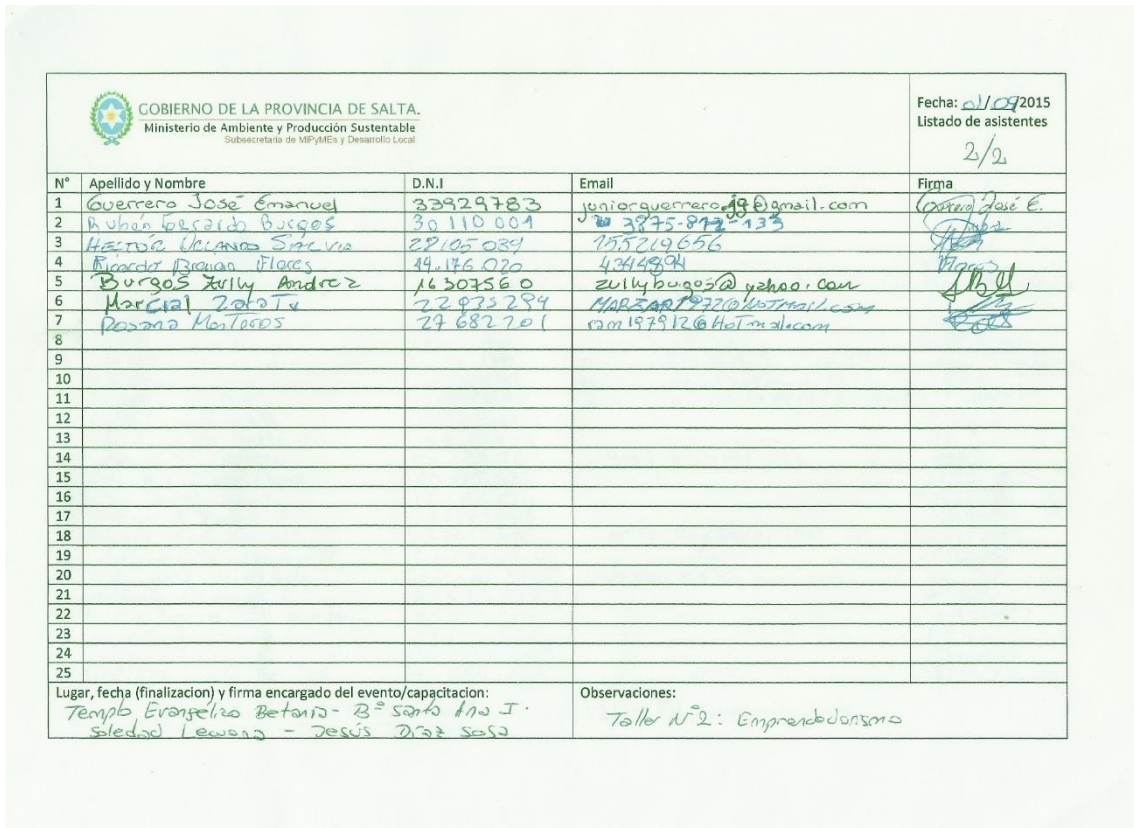 GOBIERNO DE LA PROVINCIA DE SALTA.
Ministerio de Ambiente y Producción Sustentable
Subsecretaría de MiPyMEs y Desarrollo Local
Fecha: 01/09/2015
Listado de asistentes
2/2
N° Apellido y Nombre D.N.I Email Firma
1 Guerrero José Emanuel 33929783 juniorguerrero.jg@gmail.com Guerrero José E.
2 Rubén Gerardo Burgos 30 110 001 3875-872-133
3 HECTOR 28105039 155219656
4 Ricardo Flores 14.176.020 4344894 Flores
5 Burgos Zully Andrez 16307560 zullyburgos@yahoo.com
6 Marcial 22935294 MARZAR1972@HOTMAIL.com
7 Rosana 27682201 ram197912@HoTmail.com
8
9
10
11
12
13
14
15
16
17
18
19
20
21
22
23
24
25
Lugar, fecha (finalizacion) y firma encargado del evento/capacitacion:
Templo Evangélico Betania - B° Santa Ana I.
Soledad - Jesús Díaz Sosa
Observaciones:
Taller N°2: Emprendedorismo